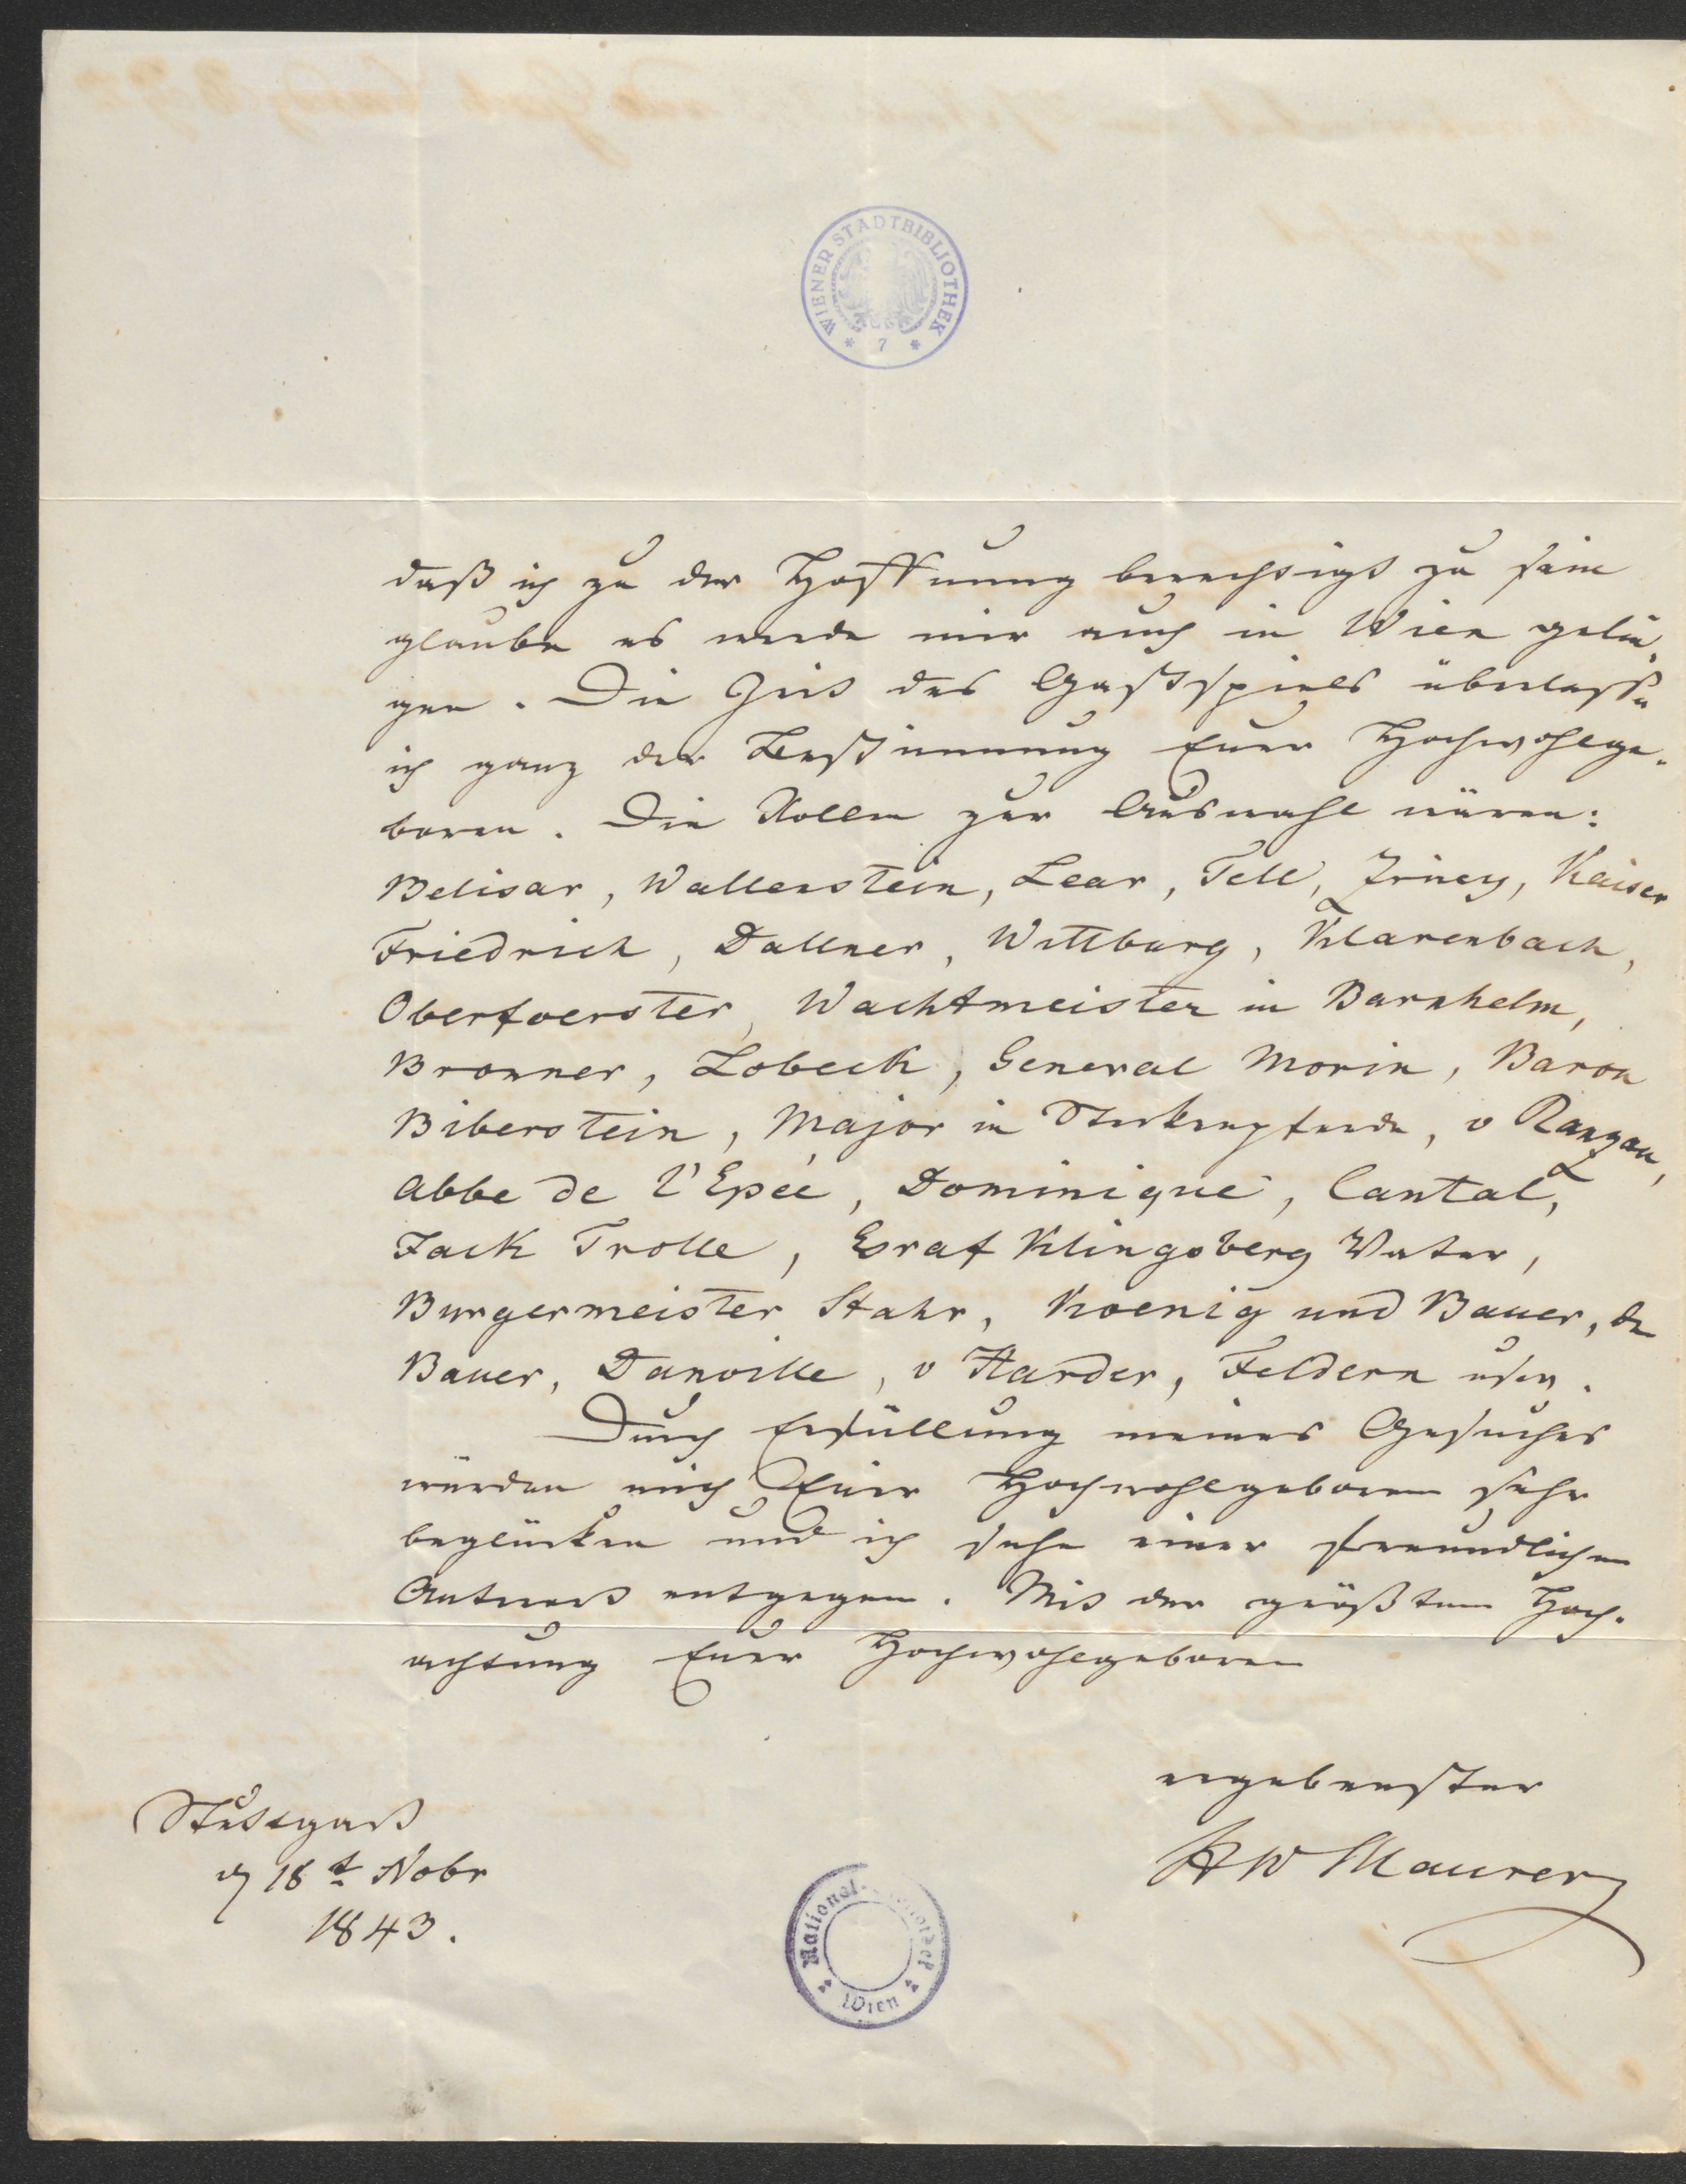 WIENER STADTBIBLIOTHEK
* 7 *
daß ich zu der Hoffnung berechtigt zu sein
glaube es werde mir auch in Wien gelin-
gen. Die Zeit des Gastspiels überlasse
ich ganz der Bestimmung Euer Hochwohlge-
boren. Die Rollen zur Auswahl wären:
Belisar, Wallenstein, Lear, Tell, Zriney, Kaiser
Friedrich, Dallner, Wittburg, Klarenbach,
Oberfoerster, Wachtmeister in Barnhelm,
Bronner, Lobeck, General Morin, Baron
Biberstein, Major in Steckenpferde, v Ranzau,
Abbe de l'Epée, Dominique, Cantal,
Jack Trolle, Graf Klingsberg Vater,
Burgermeister Stahr, Koenig und Bauer, den
Bauer, Danville, v Harder, Feldern usw.
Durch Erfüllung meines Gesuches
würden mich Euer Hochwohlgeboren sehr
beglücken und ich sehe einer freundlichen
Antwort entgegen. Mit der größten Hoch-
achtung Euer Hochwohlgeboren
ergebenster
HW Maurer
Stuttgart
18t Nobr
1843.
National-
Wien